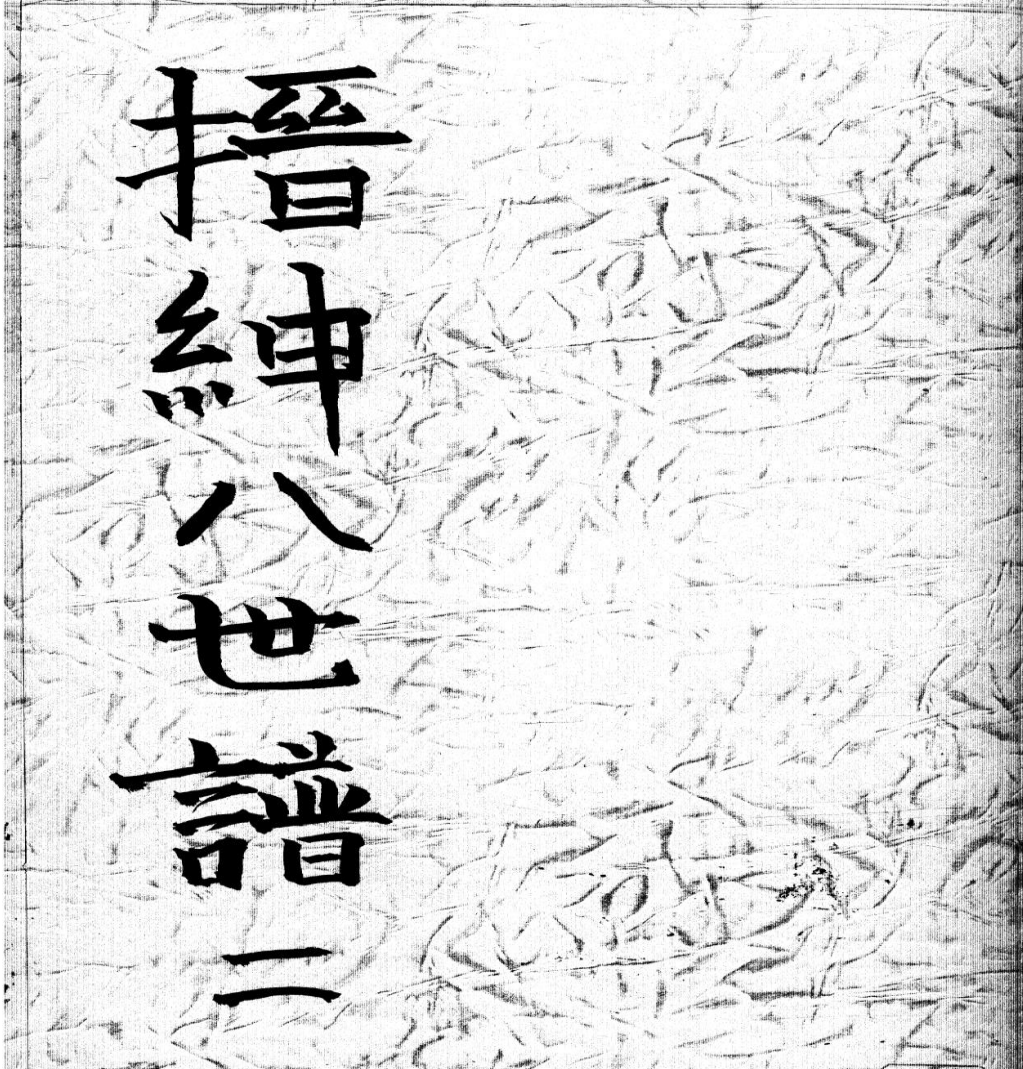 搢紳八世譜二